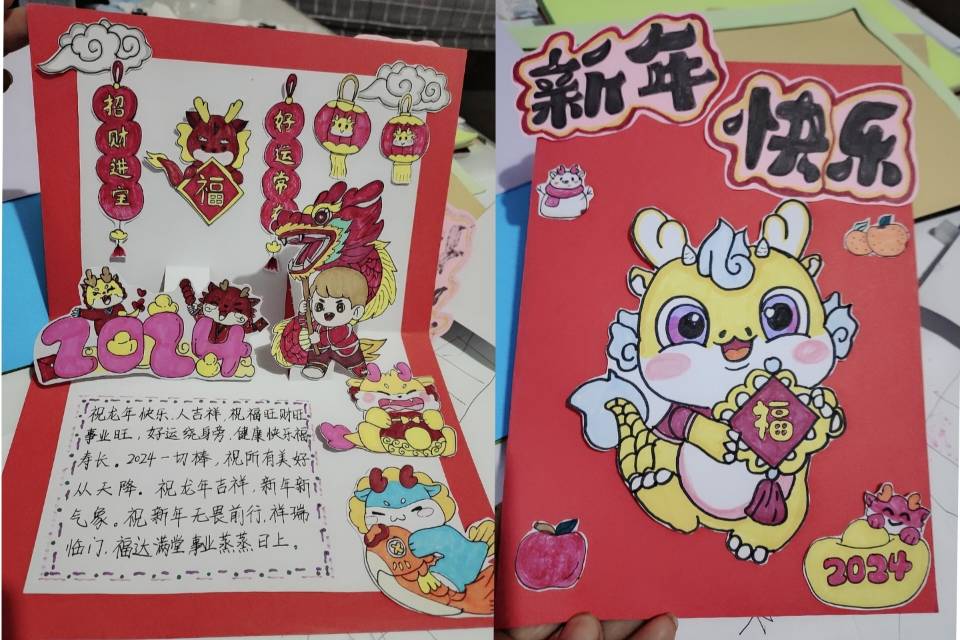 招财进宝
福
好运常
2024
祝龙年快乐.人吉祥.祝福旺财旺
事业旺，好运绕身旁.健康快乐福
寿长。2024一切棒，祝所有美好
从天降。祝龙年吉祥，新年新
气象。祝新年无畏前行.祥瑞
临门.福达满堂事业蒸蒸日上。
新年
快乐
福
2024